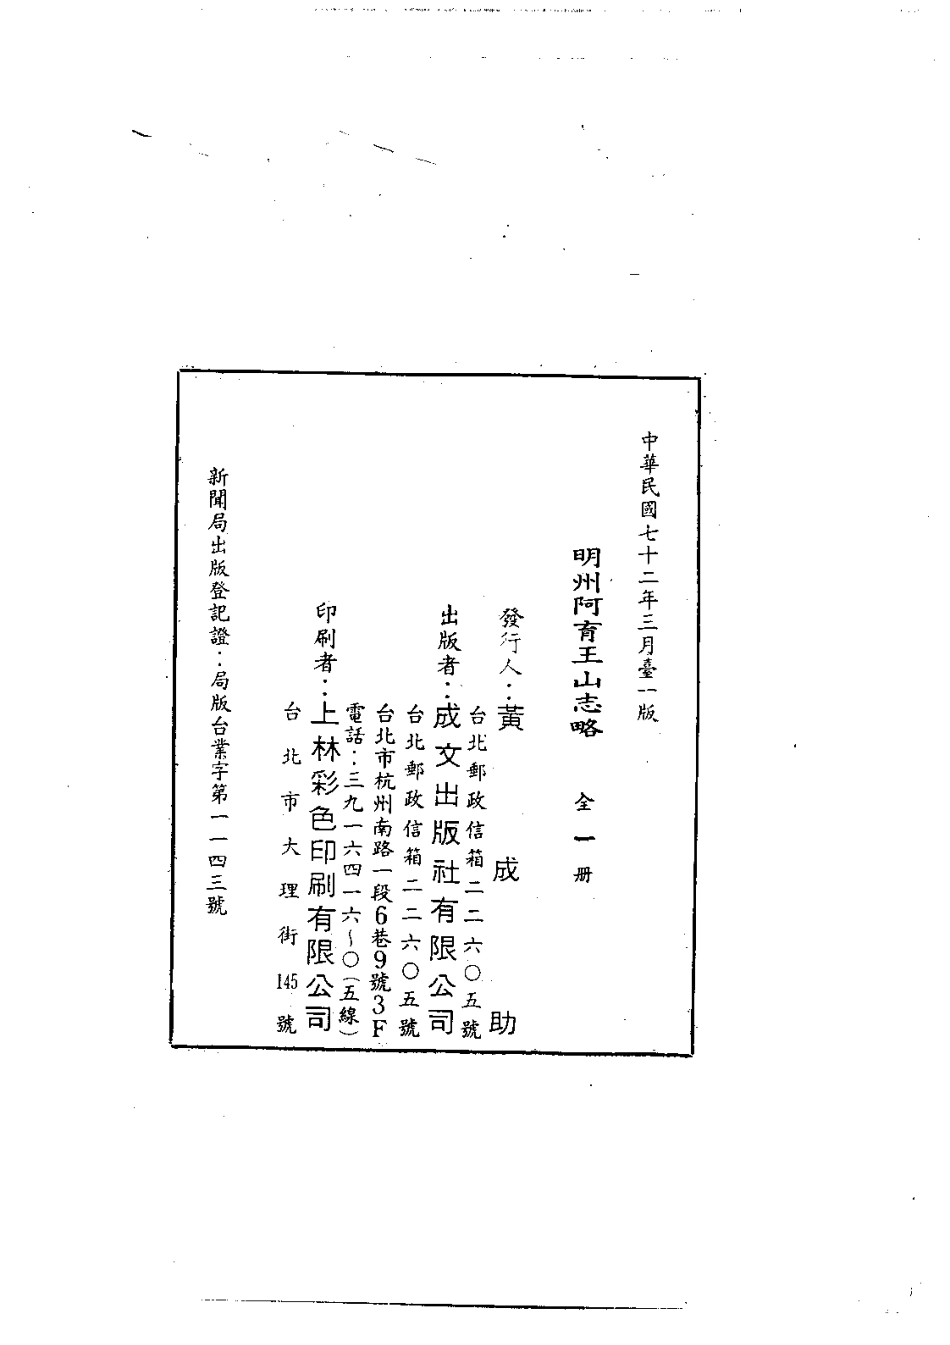 中華民國七十二年三月臺一版
明州阿育王山志略 全一册
發行人：黃成助
台北郵政信箱二二六〇五號
出版者：成文出版社有限公司
台北郵政信箱二二六〇五號
台北市杭州南路一段6巷9號3F
電話：三九一六四一六～〇（五線）
印刷者：上林彩色印刷有限公司
台北市大理街145號
新聞局出版登記證：局版台業字第一一四三號